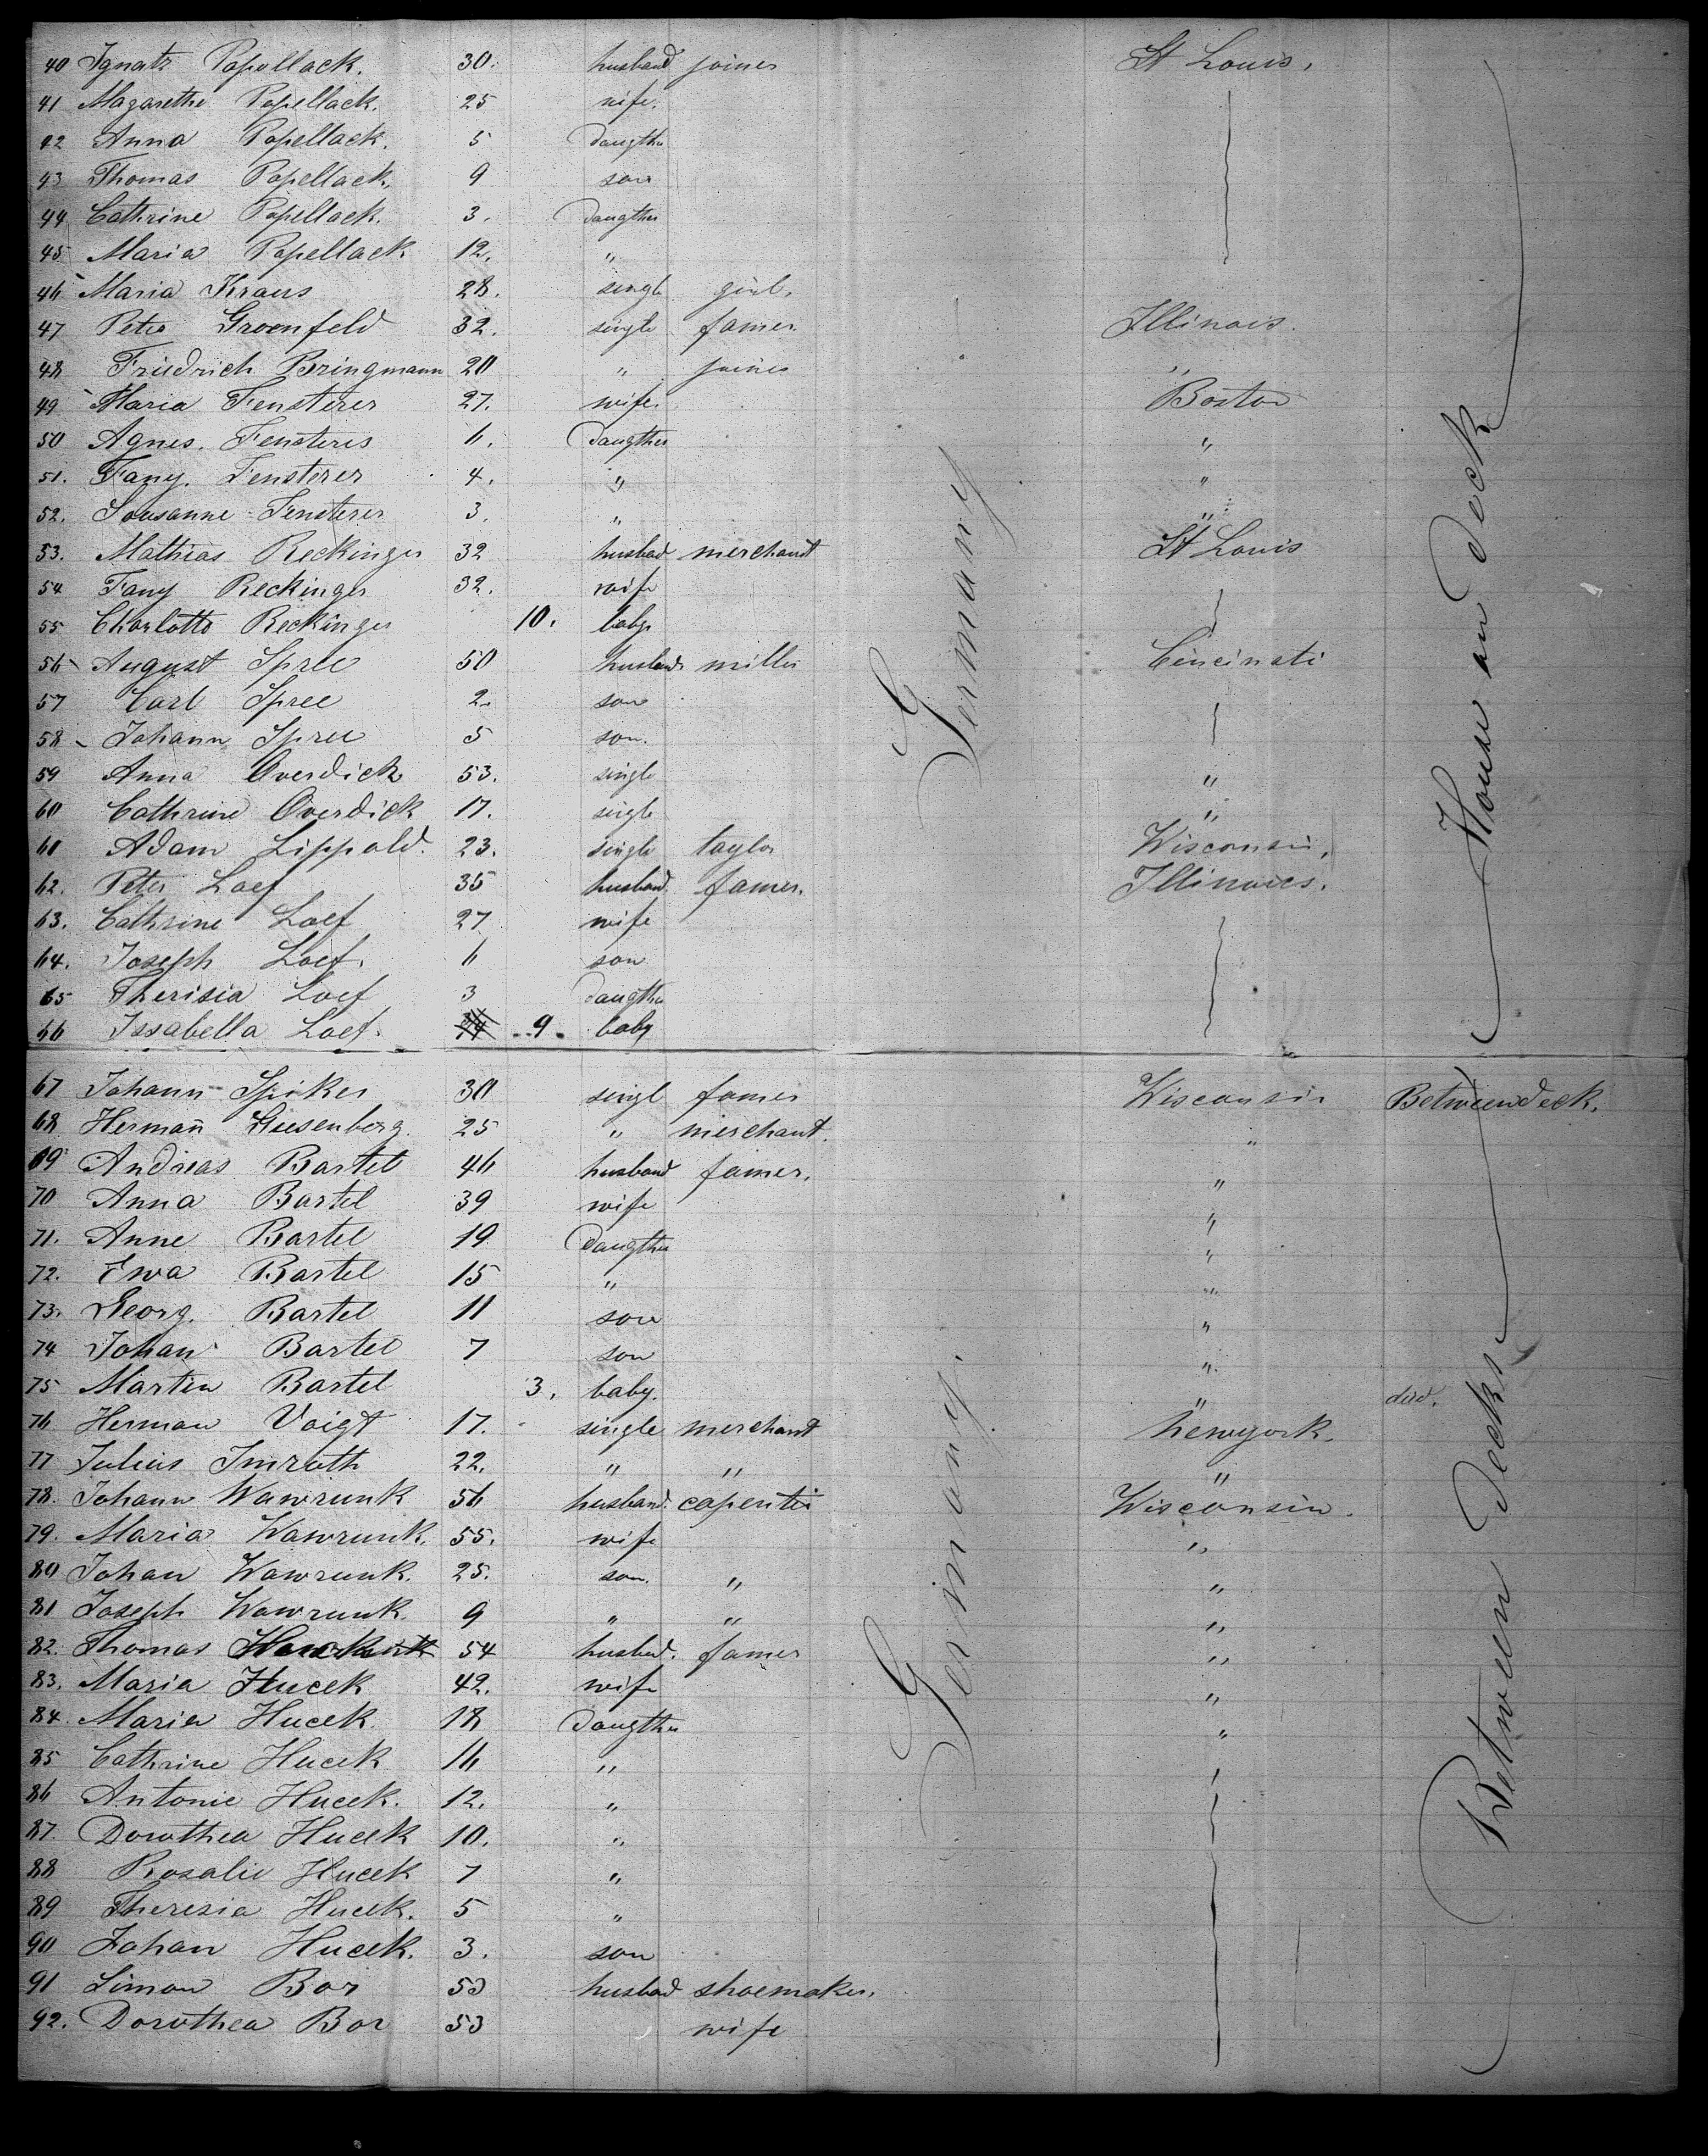 40 Ignatz Popellack. 30. husband joiner St Louis.
41 Magarethe Popellack. 25 wife.
42 Anna Popellack. 5 Daugther
43 Thomas Popellack. 9 son
44 Cathrine Popellack. 3. Daugther
45 Maria Popellack 12. "
46 Maria Kraus 28. singl girl.
47 Peter Groenfeld 32. single famer Illinois.
48 Friedrich Bringmann 20 " joiner "
49 Maria Fensterer 27. wife. Boston
50 Agnes. Fensterer 6. Daugther "
51. Fany. Fensterer 4. " "
52. Sousanne Fensterer 3. " "
53. Mathias Reckinger 32 husbad merchant St Louis
54 Fany Reckinger 32. wife
55 Charlotte Reckinger 10. baby
56 August Spree 50 husband miller Cincinati
57 Carl Spree 2. son
58 Johann Spree 5 son.
59 Anna Overdick 53. single "
60 Cathrine Overdick 17. single "
61 Adam Lippold. 23. single taylor Wisconsin.
62. Peter Loef 35 husband famer. Illinoies.
63. Cathrine Loef 27 wife
64. Joseph Loef. 6 son
65 Therisia Loef 3 Daugther
66 Issabella Loef. 9. baby
Germany
House on Deck
67 Johann Spiker 30 singl famer Wisconsin Betweendeck.
68 Hermañ Giesenberg. 25 " merchant. "
69 Andreas Bartel 46 husband famer. "
70 Anna Bartel 39 wife "
71. Anne Bartel 19 Daugther "
72. Ewa Bartel 15 " "
73. Georg. Bartel 11 son "
74 Johan Bartel 7 son "
75 Martin Bartel 3. baby. " died.
76 Herman Voigt 17. single merchant Newyork.
77 Julius Imroth 22. " " "
78. Johann Wawrunk 56 husband. capenter Wisconsin.
79. Maria Wawrunk. 55. wife "
80 Johan Wawrunk. 25. son. " "
81 Joseph Wawrunk. 9 " " "
82. Thomas 54 husbad. famer "
83. Maria Hucek 42. wife "
84. Maria Hucek 18 Daugther "
85 Cathrine Hucek 16 "
86 Antonie Hucek. 12. "
87. Dorothea Hucek 10. "
88 Rosalie Hucek 7 "
89 Theresia Hucek. 5 "
90 Johan Hucek. 3. son
91 Simon Bor 53 husbad shoemaker.
92. Dorothea Bor 53 wife
Germany.
Between Deck